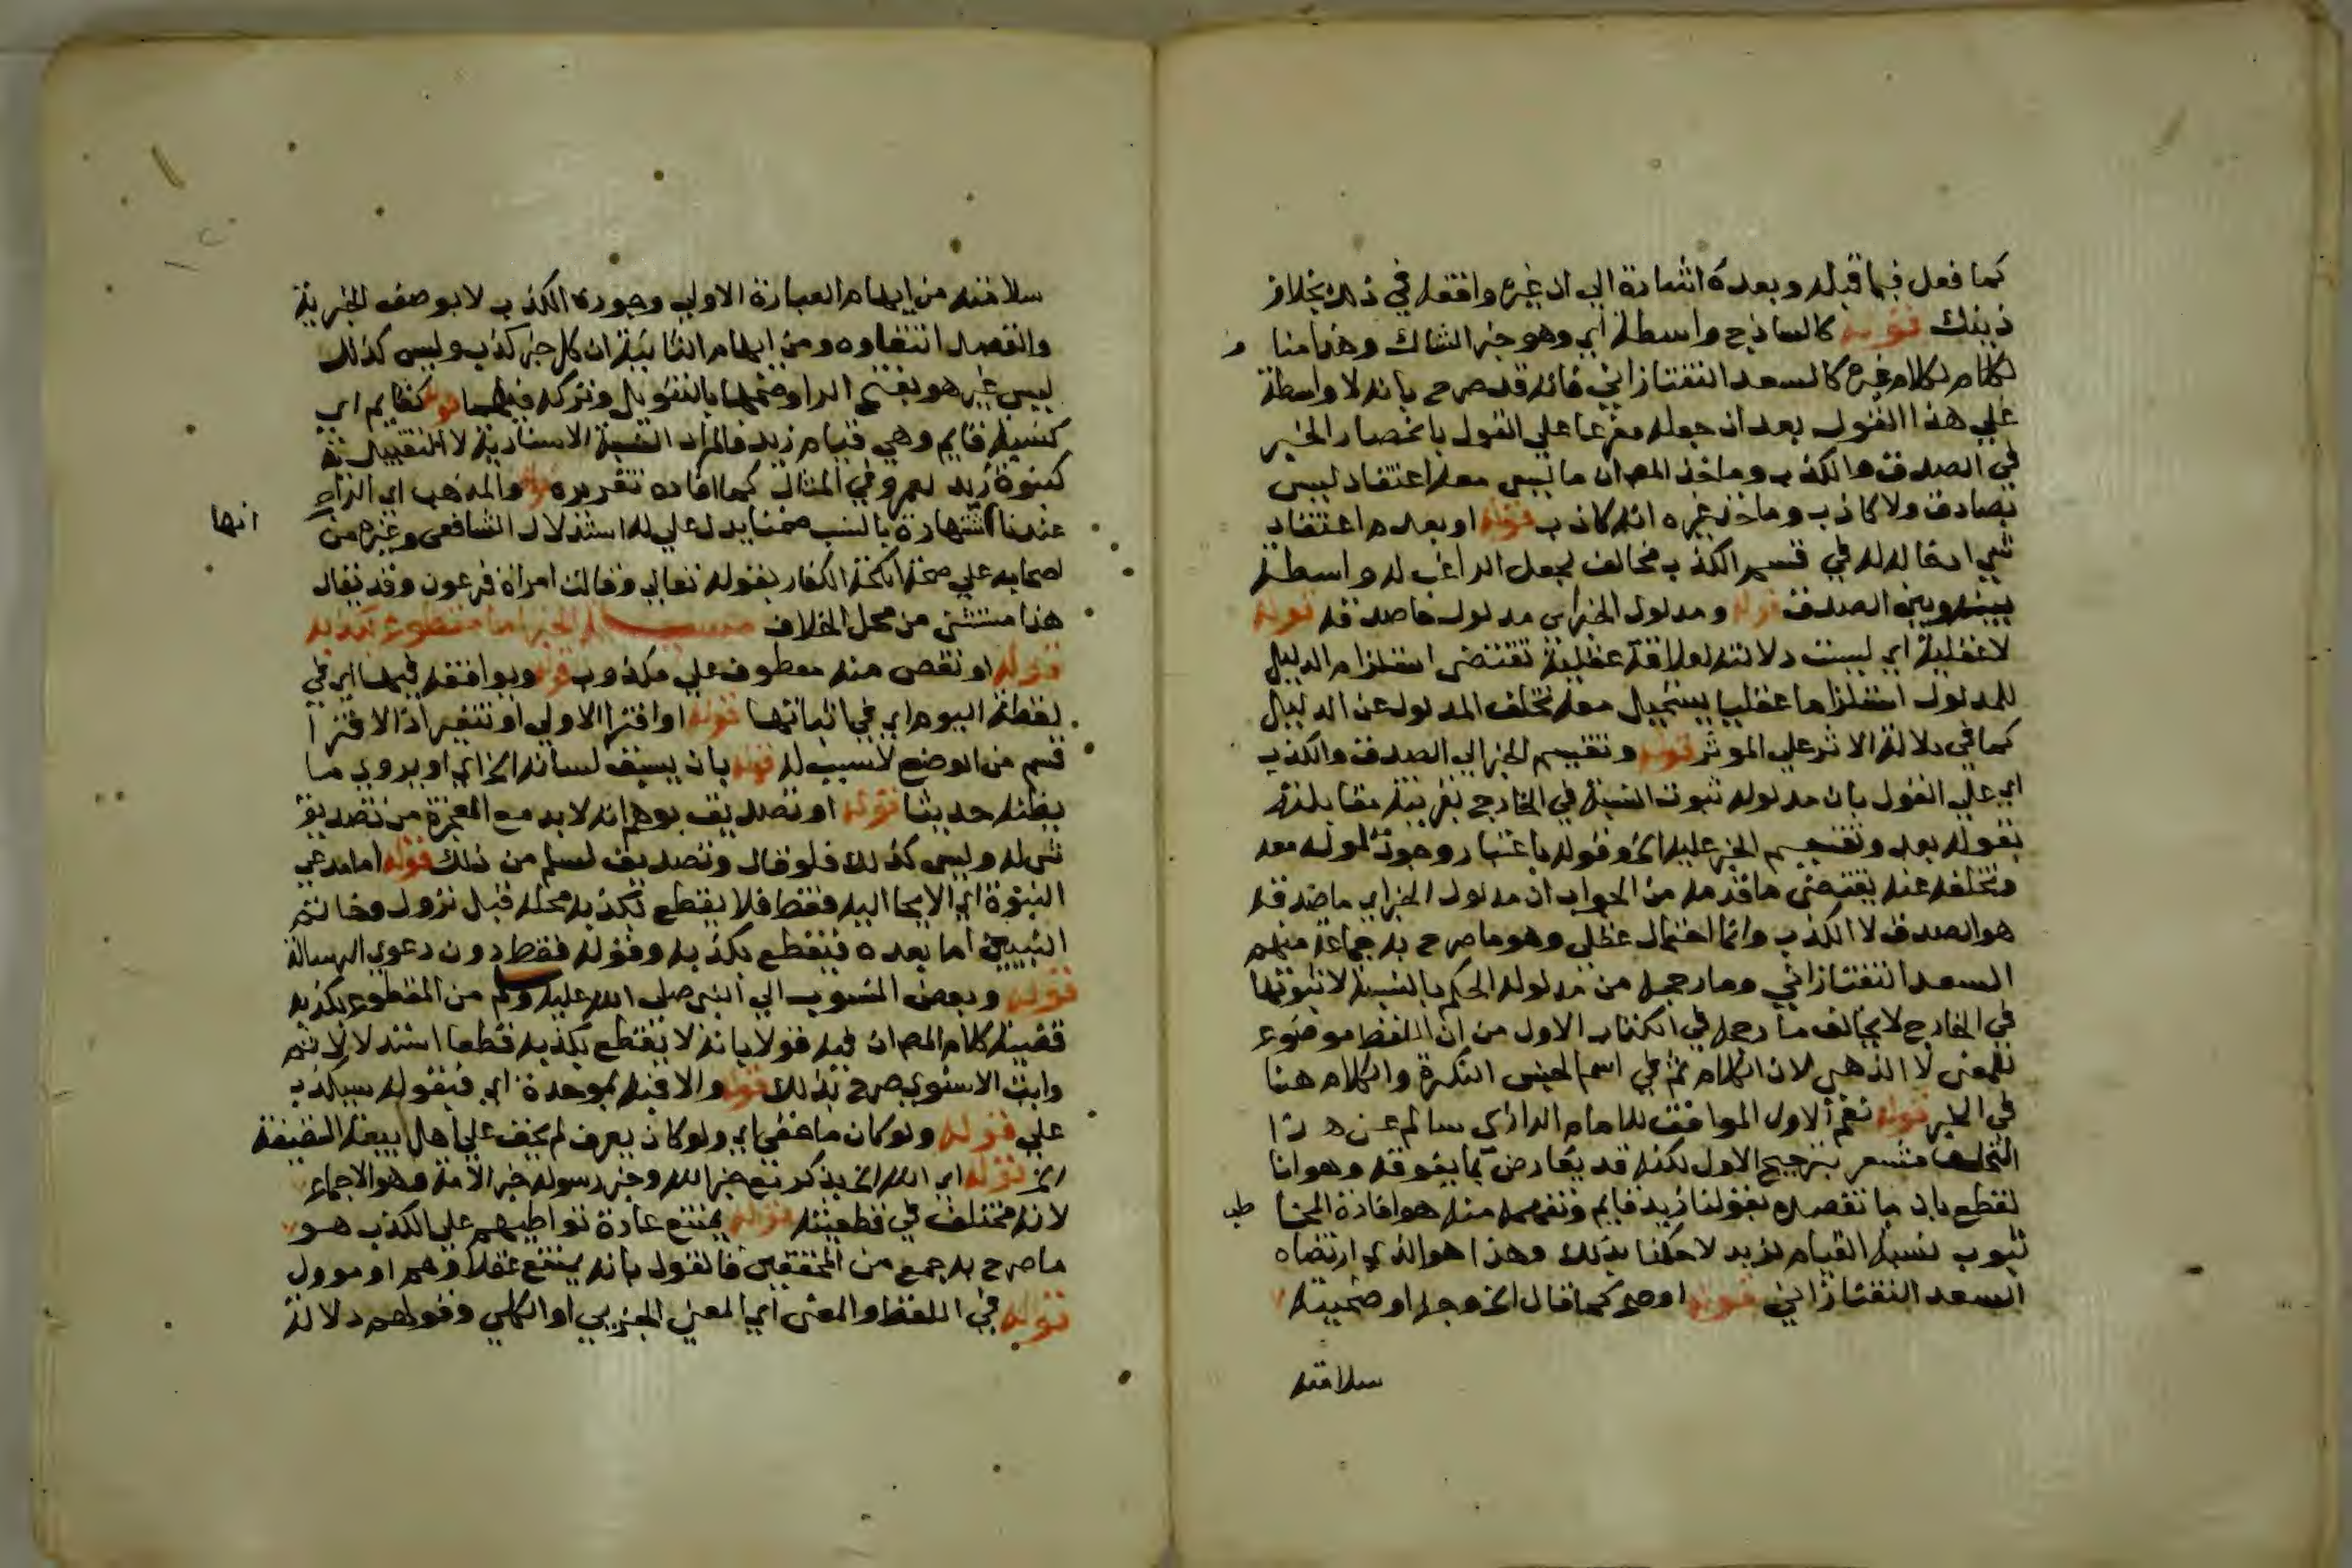 كما فعل فيما قبله وبعده اشارة الي ان غيره وافقه في ذلك بخلاف
ذينك قوله كالساذج واسطة اي وهو خبر الشاك وهذا منا
لكلام غيره كالسعد التفتازاني فانه قد صرح بانه لا واسطة
علي هذا القول بعد ان جعله مفرعا علي القول بانحصار الخبر
في الصدق والكذب وماخذ المص ان ما ليس معه اعتقاد ليس
بصادق ولا كاذب وماخذ غيره انه كاذب قوله او بعدم اعتقاد
شي ادخاله له في قسم الكذب مخالف لجعل الراغب له واسطة
بينه وبين الصدق قوله ومدلول الخبر اي مدلول ماصدقه قوله
لا عقلية اي ليست دلالته لعلاقة عقلية تقتضي استلزام الدليل
للمدلول استلزاما عقليا يستحيل معه تخلف المدلول عن الدليل
كما في دلالة الاثر علي الموثر قوله وتقسيم الخبر الي الصدق والكذب
اي علي القول بان مدلوله ثبوت النسبة في الخارج بقرينة مقابلته
بقوله بعد وتقسيم الخبر عليه الخ وقوله باعتبار وجود مدلوله معه
وتخلفه عنه يقتضي ما قدمه من الجواب ان مدلول الخبر اي ماصدقه
هو الصدق لا الكذب وانما احتمال عقلي وهو ما صرح به جماعة منهم
السعد التفتازاني وما رجحه من مدلوله الحكم بالنسبة لا ثبوتها
في الخارج لا يخالف ما رجحه في الكتاب الاول من ان اللفظ موضوع
للمعني لا الذهني لان الكلام ثم في اسم الجنس النكرة والكلام هنا
في الخبر قوله نعم الاول الموافق للامام الرازي سالم عن هذا
التخلف مشعر بترجيح الاول لكنه قد يعارض بما يفوقه وهو انا
نقطع بان ما نقصده بقولنا زيد قايم ونفهمه منه هو افادة المخا طب
ثبوب نسبة القيام لزيد لا حكمنا بذلك وهذا هو الذي ارتضاه
السعد التفتازاني قوله اوضح كما قال الخ وجه اوضحيته
سلامته
سلامته من ايهام العبارة الاولي وجوده الكذب لا بوصف الخبرية
والقصد انتفاوه ومن ايهام الثانية ان كل خبر كذب وليس كذلك
ليس غير هو بفتح الرا وضمها بالتنوين وتركه فيهما قوله كقايم اي
كنسبة قايم وهي قيام زيد فالمراد النسبة الاسنادية لا التقييدية
كبنوة زيد لعمرو في المثال كما افاده تقريره قوله والمذهب اي الراجح
عندنا انها شهادة بالنسب ضمنا يدل علي له استدلال الشافعي وغيره من
اصحابه علي صحة انكحة الكفار بقوله تعالي وقالت امراة فرعون وقد يقال
هذا مستثني من محل الخلاف مسئلة الخبر اما مقطوع بكذبه
قوله او نقص منه معطوف علي مكذوب قوله ويوافقه فيها اي في
لفظة اليوم اي في اثباتها قوله او افترا الاولي او تنفير اذ الافترا
قسم من الوضع لا سبب له قوله بان يسبق لسانه الخ اي او يروي ما
يظنه حديثا قوله او تصديق يوهم انه لا بد مع المعجزة من تصديق
شي له وليس كذلك فلو قال وتصديق لسلم من ذلك قوله اما مدعي
النبوة اي الايحا اليه فقط فلا يقطع بكذبه محله قبل نزول وخاتم
النبيين اما بعده فيقطع بكذبه وقوله فقط دون دعوي الرسالة
قوله وبعض المنسوب الي النبي صلي الله عليه وسلم من المقطوع بكذبه
قضية كلام المص ان فيه قولا بانه لا يقطع بكذبه قطعا استدلالا ثم
وابن الاسنوي صرح بذلك قوله والا فبه بموحدة اي فبقوله سيكذب
علي قوله ولو كان ما خفي اي ولو كان يعرف لم يخف علي اهل بيعة السقيفة
الخ قوله اي الله الخ بذكر مع خبر الله وخبر رسوله خبر الامة وهو الاجماع
لانه مختلف في قطعيته قوله يمتنع عادة تواطيهم علي الكذب هو
ما صرح به جمع من المحققين فالقول بانه يمتنع عقلا وهم او موول
قوله في اللفظ والمعني اي المعني الجزيي او الكلي وقولهم دلالة